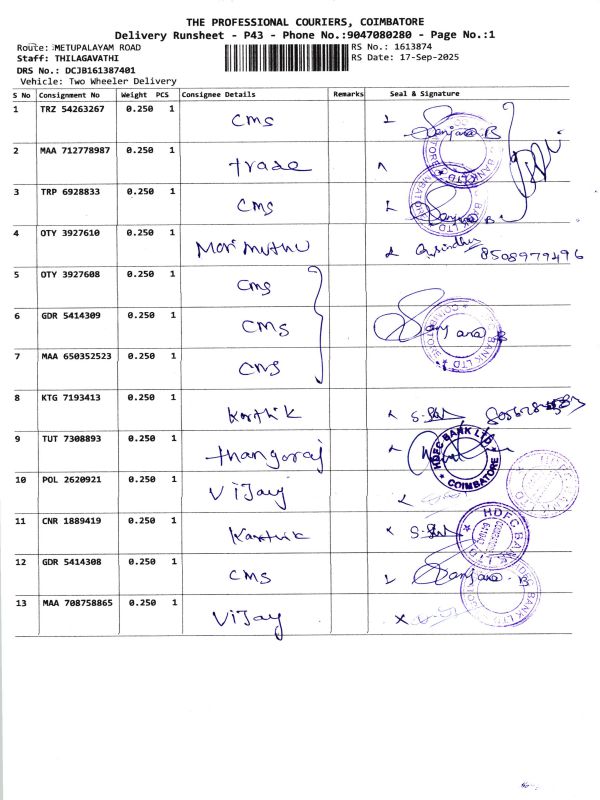 THE PROFESSIONAL COURIERS, COIMBATORE
Delivery Runsheet - P43 - Phone No.:9047080280 - Page No.:1
Route: METUPALAYAM ROAD RS No.: 1613874
Staff: THILAGAVATHI RS Date: 17-Sep-2025
DRS No.: DCJB161387401
Vehicle: Two Wheeler Delivery
S No Consignment No Weight PCS Consignee Details Remarks Seal & Signature
1 TRZ 54263267 0.250 1 CMS Sanjana.B
2 MAA 712778987 0.250 1 trade
3 TRP 6928833 0.250 1 CMS Sanjana B
4 OTY 3927610 0.250 1 Mari muthu 8508979496
5 OTY 3927608 0.250 1 CMS
6 GDR 5414309 0.250 1 CMS Sanjana B
7 MAA 650352523 0.250 1 CMS
8 KTG 7193413 0.250 1 Karthik
9 TUT 7308893 0.250 1 thangaraj HDFC BANK LTD COIMBATORE
10 POL 2620921 0.250 1 Vijay
11 CNR 1889419 0.250 1 Karthik HDFC BANK LTD
12 GDR 5414308 0.250 1 CMS Sanjana.B
13 MAA 708758865 0.250 1 Vijay